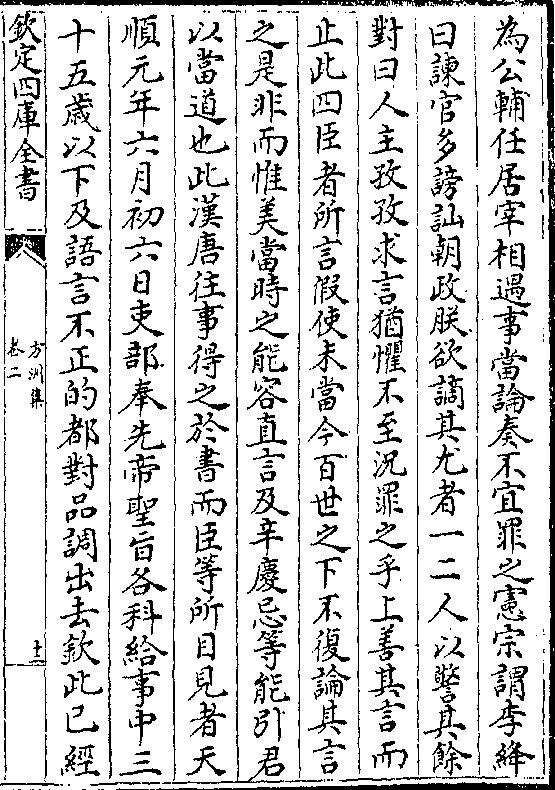 為公輔任居宰相遇事當論奏不宜罪之憲宗謂李絳
曰諫官多謗訕朝政朕欲謫其尤者一二人以警其餘
對曰人主孜孜求言猶懼不至況罪之乎上善其言而
止此四臣者所言假使未當今百世之下不復論其言
之是非而惟美當時之能容直言及辛慶忌等能引君
以當道也此漢唐往事得之於書而臣等所目見者天
順元年六月初六日吏部奉先帝聖旨各科給事中三
十五歲以下及語言不正的都對品調出去欽此已經
欽定四庫全書
方洲集
卷二
十一